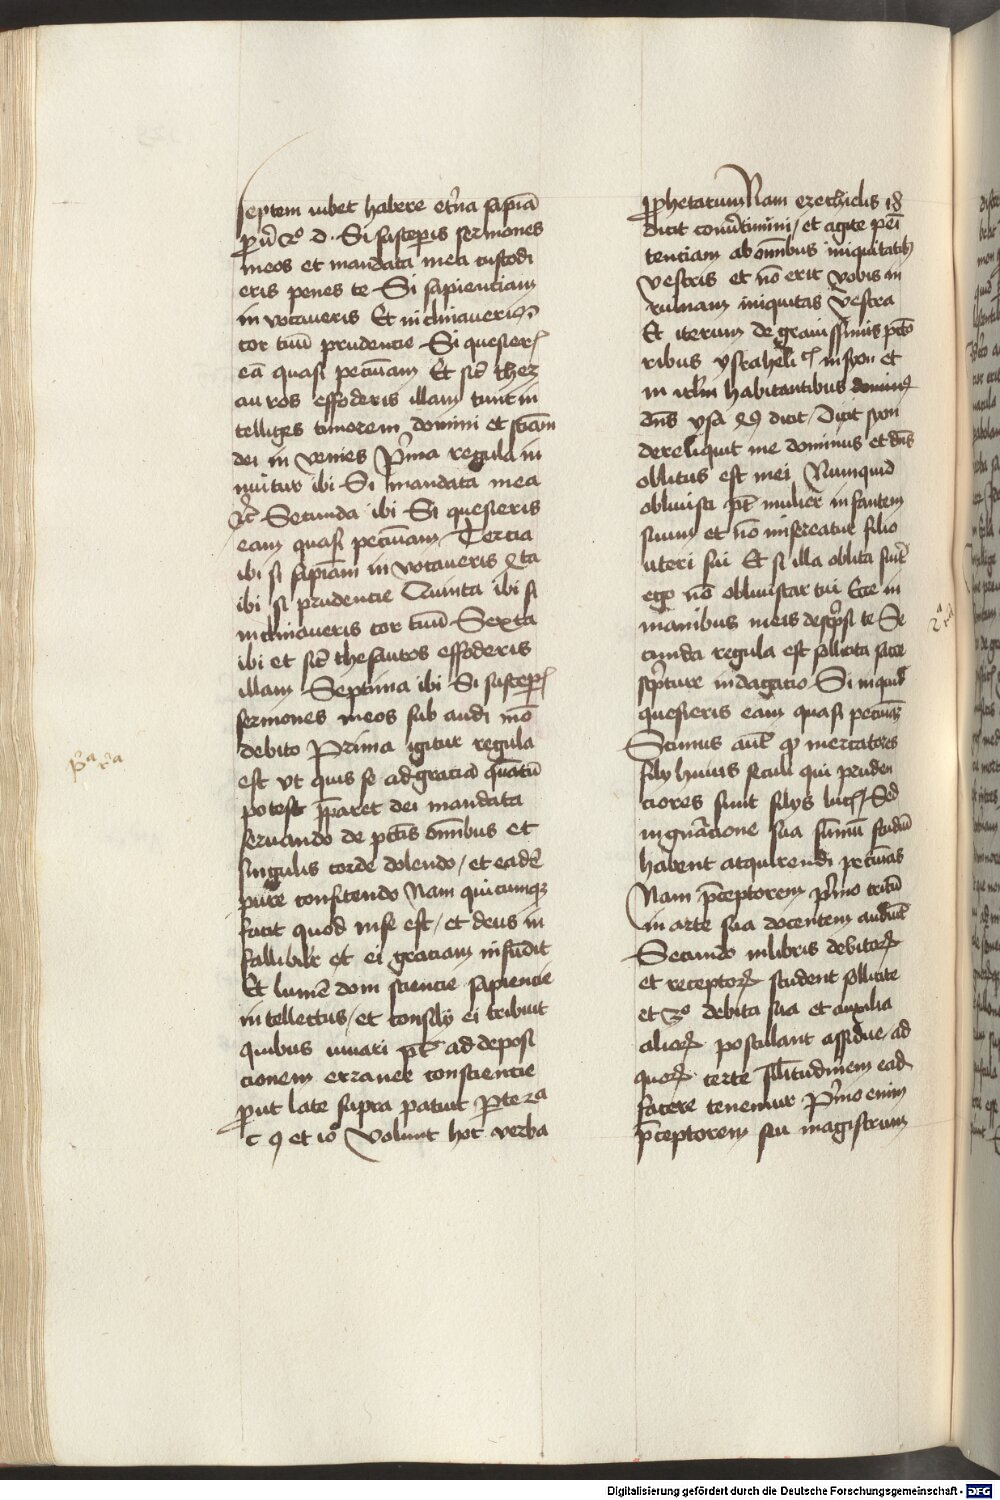 septem iubet habere et͛na sapiā
ꝓ ij 2º d. Si susceperis sermones
meos et mandata mea custodi
eris penes te Si sapientiam
in vocaveris Et inclinaveris
cor tuū prudencie Si quesier
eā quasi pecūiam Et sic̄ thez
auros effoderis illam tunc in
telliges timorem domini et sciām
dei in venies Prima regula in
nuitur ibi Si mandata mea
Secunda ibi Si quesieris
eam quasi pecūiam Tercia
ibi si sapiam in vocaveris 4ta
ibi si prudencie Quinta ibi si
inclinaveris cor tuū Sexta
ibi et sic̄ thesauros effoderis
illam Septima ibi Si susceper
sermones meos sub audi mō
debito Prima igitur regula
est vt quis se ad graciā quātū
potest p̄paret dei mandata
servando de pctīs om̄ibus et
singulis corde dolendo / et eadē
pure confitendo Nam quicumqz
facit quod in se est / et deus in
fallibilīr et ei graciam infūdit
Et lumē dom sciencie sapiencie
intellectus / et consilij ei tribuit
quibus iuvari pt̄ ad deposi
cionem erranee consciencie
put late supra patuit parte 2a
c 9 et 10 Volunt hoc verba
prophetarum Nam ezechielis 18
dicit convertimini / et agite peni
tenciam ab om̄ibus iniquitatib
vestris et nō erit vobis in
ruinam iniquitas vestra
Et iterum de gravissimis pctō
ribus ysrahel in syon et
in irlm habitantibus
dn̄s ysa 49 dicit Dicit syon
dereliquit me dominus et dn̄s
oblitus est mei Numquid
oblivisci pt̄ mulier infantem
suum et nō misereatur filio
uteri sui Et si illa oblita fuīt
ego nō obliviscar tui Ecce in
manibus meis descpsi te Se
cunda regula est sollicita sacre
scpture indagacio Si inquid
quesieris eam quasi pecūiaz
Scimus autē qp mercatores
filij huius seculi qui pruden
ciores sunt filijs luc / Sed
in gnācione sua sūmū studiū
habent acquirendi pecūias
Nam p̄ceptorem primo
in arte sua docentem audiūt
Secundo in libris debitorꝝ
et receptorꝝ student sollicite
et 3º debita sua et auxilia
aliorꝝ postulant assidue / ad
quorꝝ certe silitudinem ead
facere tenemur Primo enim
p̄ceptorem seu magistrum
pª rª
2ª